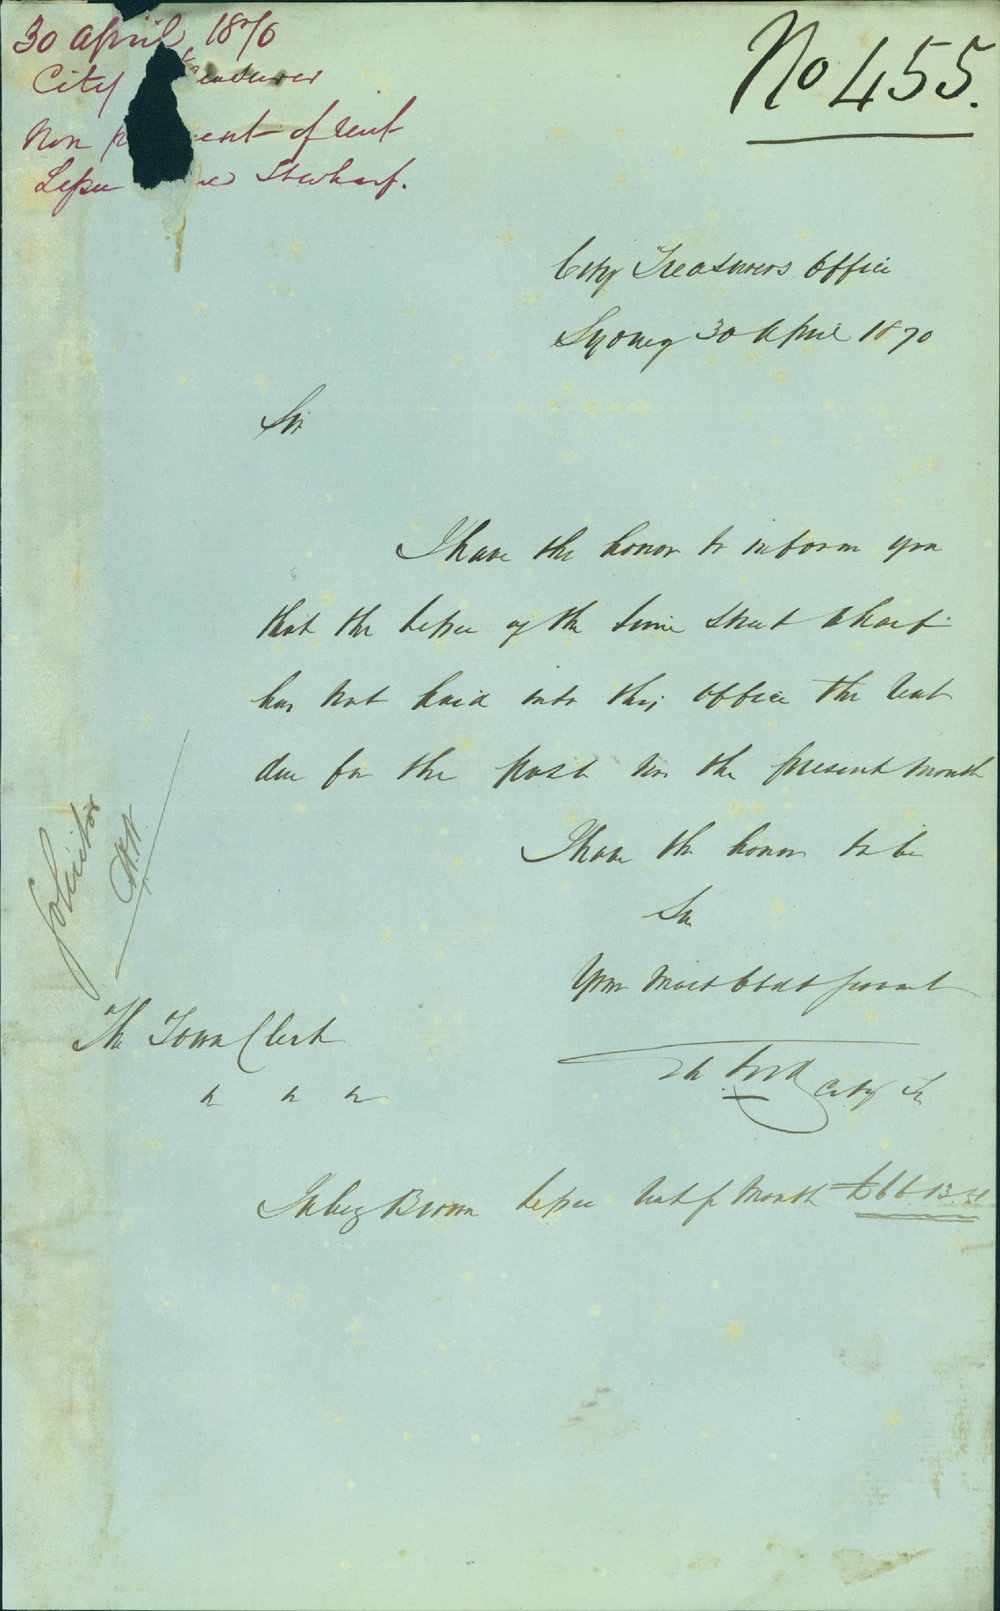 30 April 1870
City Treasurer
Non p ent of rent
Lessee e St wharf.
No 455.
City Treasurers Office
Sydney 30 April 1870
Sir
I have the honor to inform you
that the Lessee of the Lime Street Wharf
has not paid into this Office the Rent
due for the past nor the present month
I have the honor to be
Sir
Your Most Obdt Servant
City Tr
Solicitor
The Town Clerk
Jabez Brown Lessee Rent p Month £66.13.4